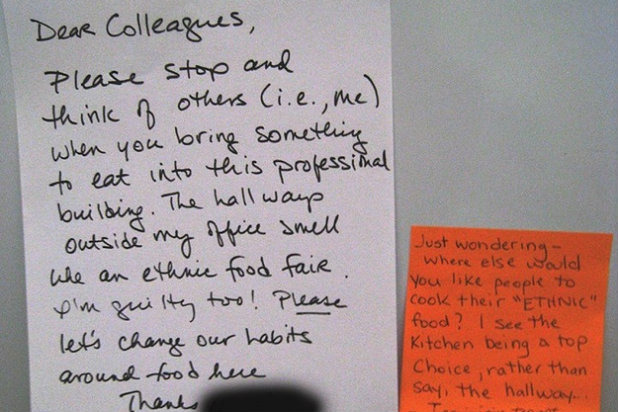 Dear Colleagues,
Please stop and
think of others (i.e., me)
when you bring something
to eat into this professional
building. The hallways
outside my office smell
like an ethnic food fair.
I'm guilty too! Please
let's change our habits
around food here
Thanks
Just wondering –
where else would
you like people to
cook their "ETHNIC"
food? I see the
Kitchen being a top
Choice, rather than
say, the hallway...